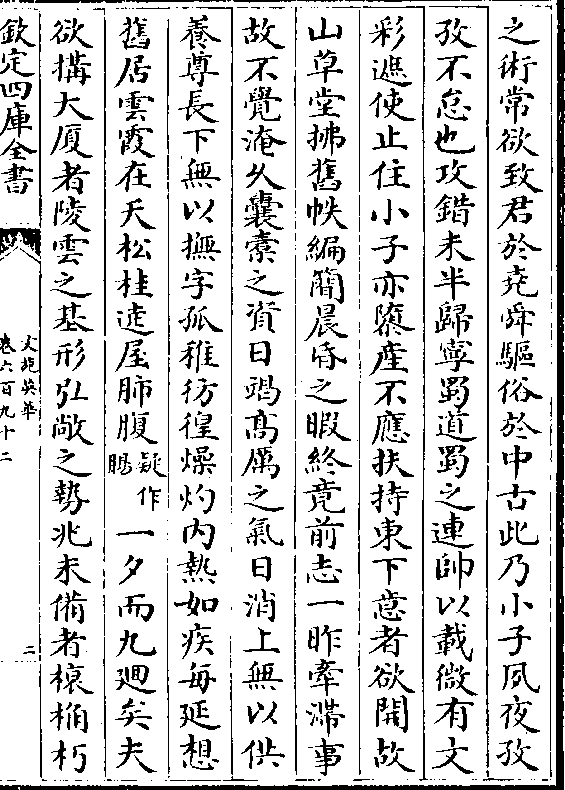 之術常欲致君於堯舜驅俗於中古此乃小子夙夜孜
孜不怠也攻錯未半歸寧蜀道蜀之連帥以載微有文
彩遮使止住小子亦隳產不應扶持東下意者欲開故
山草堂拂舊帙編簡晨昏之暇終竟前志一昨牽滯事
故不覺淹久囊橐之資日竭髙厲之氣日消上無以供
養尊長下無以撫字孤稚彷徨燥灼内熱如疾每延想
舊居雲霞在天松桂遶屋肺腹疑作腸一夕而九廻矣夫
欲搆大厦者陵雲之基形弘敞之勢兆未備者榱桷朽
欽定四庫全書
文苑英華
卷六百九十二
二